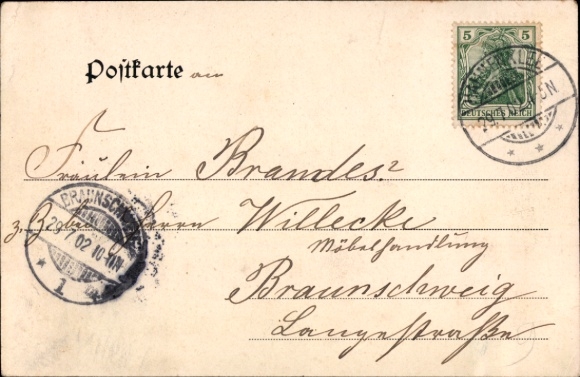 5 5
DEUTSCHES REICH
HAHNENKLEE
Postkarte an
Fräulein Brandes
z. Herrn Willecke
Möbelhandlung
Braunschweig
Langestraße
BRAUNSCHWEIG
7 02 10-11N
* 1 *